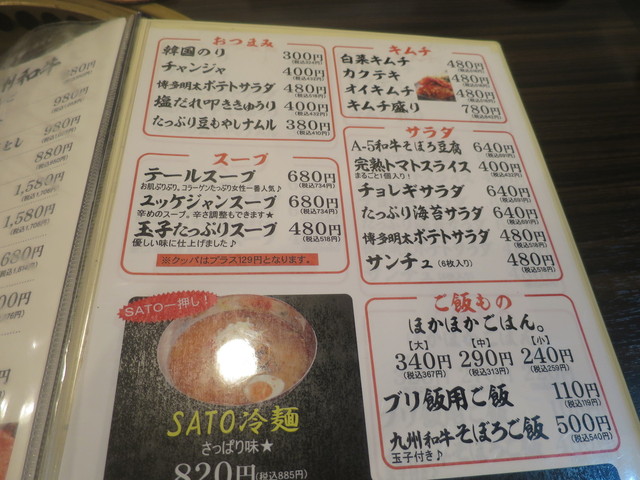 州和牛
980円
980円
880円
1,580円
1,580円
おつまみ
韓国のり 300円
(税込324円)
チャンジャ 400円
(税込432円)
博多明太ポテトサラダ 480円
(税込518円)
塩だれ叩ききゅうり 400円
(税込432円)
たっぷり豆もやしナムル 380円
(税込410円)
キムチ
白菜キムチ 480円
(税込518円)
カクテキ 480円
(税込518円)
オイキムチ 480円
(税込518円)
キムチ盛り 780円
(税込842円)
スープ
テールスープ 680円
(税込734円)
お肌ぷりぷり。コラーゲンたっぷり女性一番人気♪
ユッケジャンスープ 680円
(税込734円)
辛めのスープ。辛さ調整もできます★
玉子たっぷりスープ 480円
(税込518円)
優しい味に仕上げました♪
※クッパはプラス129円となります。
サラダ
A-5和牛そぼろ豆腐 640円
(税込691円)
完熟トマトスライス 400円
(税込432円)
まるごと1個入り!
チョレギサラダ 640円
(税込691円)
たっぷり海苔サラダ 640円
(税込691円)
博多明太ポテトサラダ 480円
(税込518円)
サンチュ (6枚入り) 480円
(税込518円)
SATO一押し!
SATO冷麺
さっぱり味★
820円(税込885円)
ご飯もの
ほかほかごはん。
【大】 【中】 【小】
340円 290円 240円
(税込367円) (税込313円) (税込259円)
ブリ飯用ご飯 110円
(税込119円)
九州和牛そぼろご飯 500円
(税込540円)
玉子付き♪